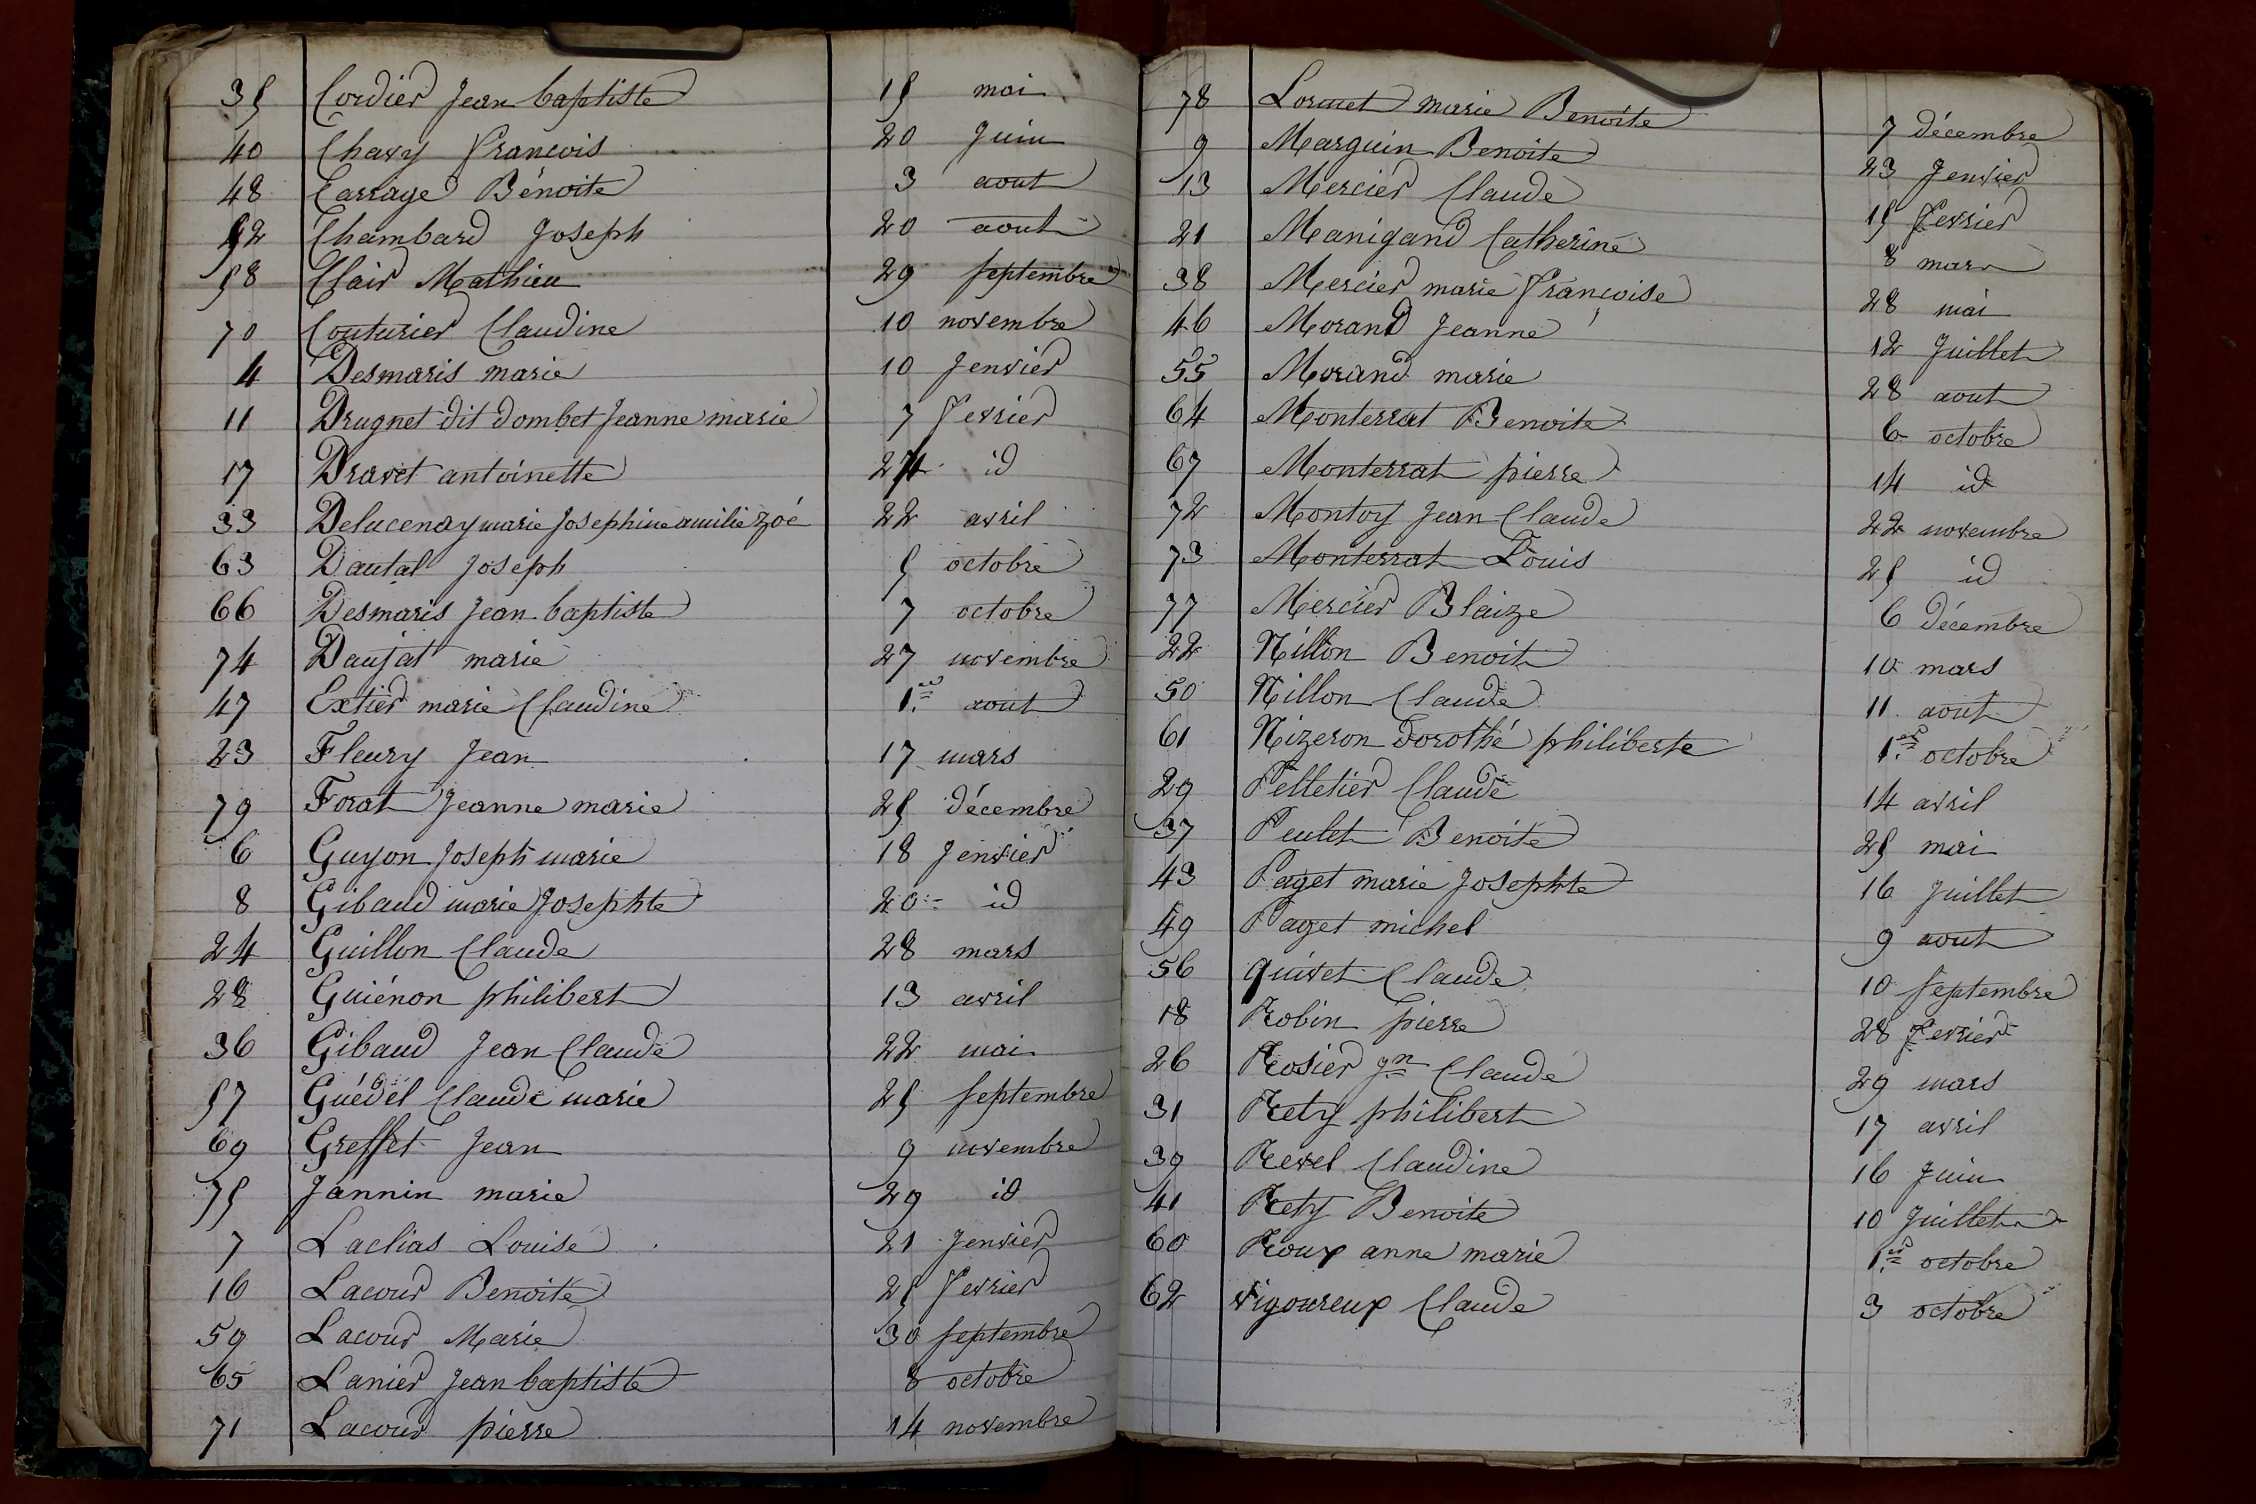 35 Cordier Jean baptiste 15 mai
40 Chavy francois 20 Juin
48 Carrage Bénoite 3 aout
52 Chambard Joseph 20 aout
58 Clair Mathieu 29 septembre
70 Couturier Claudine 10 novembre
4 Desmaris marie 10 Jenvier
11 Drugnet dit dombet Jeanne marie 7 fevrier
17 Dravet antoinette 24 id
33 Delucenay marie Josephine amilie zoé 22 avril
63 Dautal Joseph 5 octobre
66 Desmaris Jean baptiste 7 octobre
74 Daujat marie 27 novembre
47 Extier marie Claudine 1.er aout
23 Fleury Jean 17 mars
79 Forat Jeanne marie 25 décembre
6 Guyon Joseph marie 18 Jenvier
8 Gibaud marie Josephte 20 id
24 Guillon Claude 28 mars
28 Guiénon philibert 13 avril
36 Gibaud Jean Claude 22 mai
57 Guédel Claude marie 25 septembre
69 Greffet Jean 9 novembre
75 Jannin marie 29 id
7 Laclias Louise 21 Jenvier
16 Lacour Benoite 25 fevrier
59 Lacour Marie 30 septembre
65 Lanier Jean baptiste 8 octobre
71 Lacour pierre 14 novembre
78 Lormet marie Benoite 7 décembre
9 Marguin Benoite 23 Jenvier
13 Mercier Claude 15 fevrier
21 Manigand Catherine 8 mars
38 Mercier marie francoise 28 mai
46 Morand Jeanne 12 Juillet
55 Morand marie 28 aout
64 Monterrat Benoite 6 octobre
67 Monterrat pierre 14 id
72 Montoy Jean Claude 22 novembre
73 Monterrat Louis 25 id
77 Mercier Blaize 6 décembre
22 Nillon Benoit 10 mars
50 Nillon Claude 11 aout
61 Nizeron dorothé philiberte 1.er octobre
29 Pelletier Claude 14 avril
37 Peulet Benoite 25 mai
43 Paget marie Josephte 16 Juillet
49 Paget michel 9 aout
56 quivet Claude 10 septembre
18 Robin pierre 28 fevrier
26 Rosier Jn Claude 29 mars
31 Rety philibert 17 avril
39 Revel Claudine 16 Juin
41 Rety Benoite 10 Juillet
60 Roux anne marie 1.er octobre
62 vigoureux Claude 3 octobre